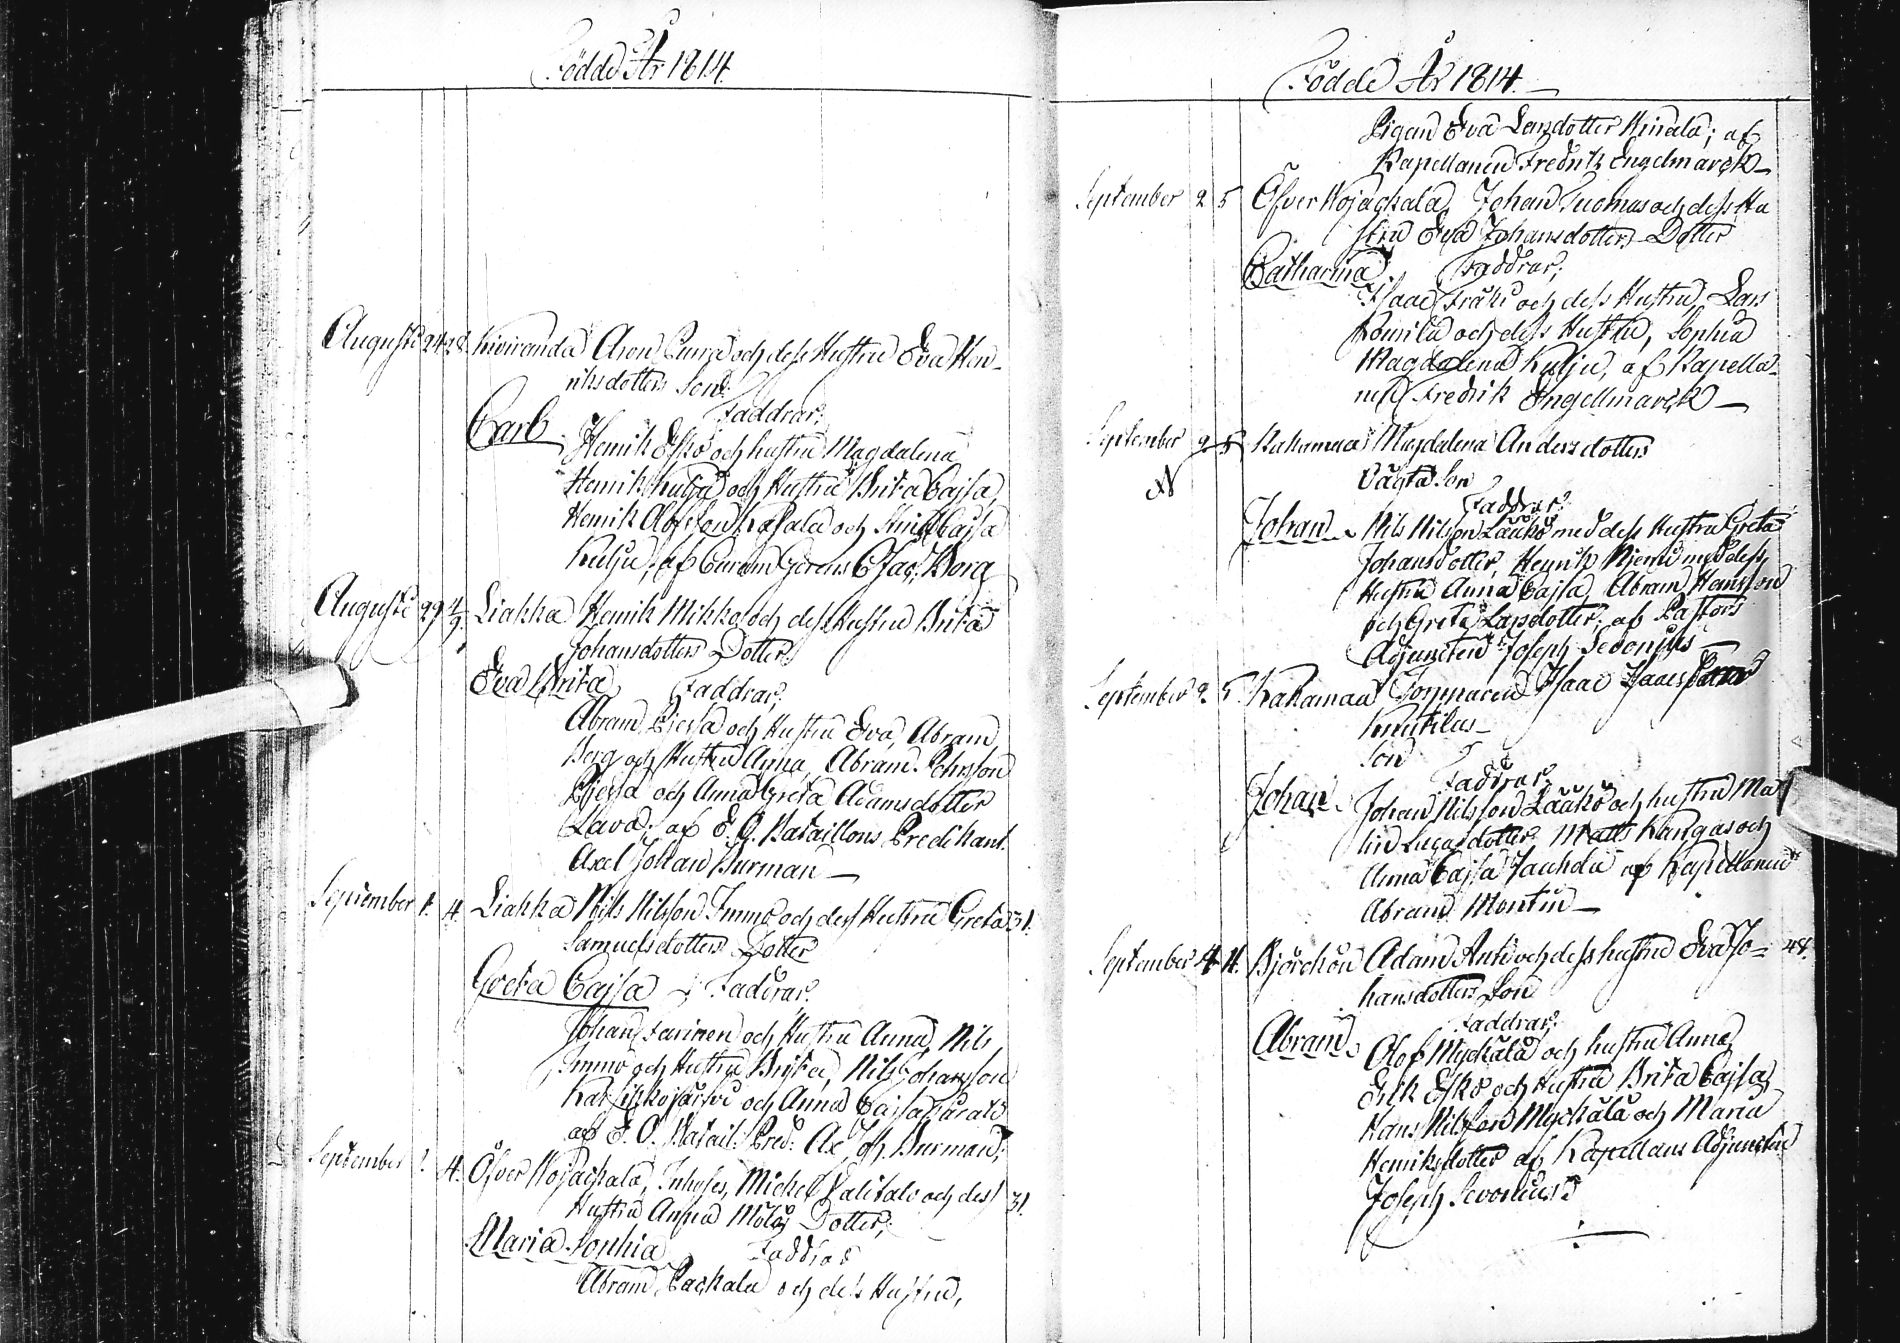 Födde År 1814.
Augusti 24 28. Kiviranda Aron Purra och dess Hustru Eva Hen-
riksdotters Son.
Faddrar:
Carl
Henrik Esko och hustru Magdalena
Henrik Kulju och Hustru Brita Cajsa,
Henrik Olofsson och Cajsa
Kulju, af Borg
Augusti 29 4/9. Liakka Henrik Mikko och dess Hustru Brita
Johansdotters Dotter.
Eva Brita Faddrar;
Abram och Hustru Eva, Abram
Berg och Hustru Anna, Abram
och Anna Greta Adamsdotter
Lava; af E. O. Bataillons Predikant.
Axel Johan Burman —
September 1. 4. Liakka Nils Nilsson Immo och dess Hustru Greta 31.
Samuelsdotters Dotter
Greta Cajsa Faddrar.
Johan och Hustru Anna, Nils
Immo och Hustru Brita, Nils Johansson
och Anna Cajsa
af E. O. Batail: Pred: Ax. Joh. Burman;
September 4. Öfver Wojackala, Inhyses, Michel Valitalo och dess 31.
Hustru Anna Dotter;
Maria Sophia Faddrar
Abram Packala och dess Hustru,
Födde År 1814. —
Pigan Eva Larsdotter; af
Kapellanen Fredrik Engelmarck —
September 2 5 Öfver Wojackala Johan Tuomas och dess Hu
stru Eva Johansdotters Dotter
Catharina Faddrar;
Isaac och dess Hustru, Lars
och dess Hustru, Sophia
Magdalena Kulju, af Kapella-
nen Fredrik Engellmarck —
September 2 5 Kakamaa Magdalena Andersdotters
Oägta Son
Faddrar:
Johan Nils Nilsson Lääkö med dess Hustru Greta
Johansdotter, Henrik Niemi med dess
Hustru Anna Cajsa, Abram Hansson
och Greta Larsdotter; af Pastors
Adjuncten Joseph Sevonius —
September 2. 5. Kakamaa Isaac Isaacsson
Knutilus —
Son
Faddrar
Johan Johan Nilsson Lääkö och hustru Ma
lin Lucasdotter Matts Kangas och
Anna Cajsa af Kapellanen
Abram Montin —
September 4 11. Björckön Adam Anti och dess hustru Eva Jo- 48.
hansdotters Son
Faddrar:
Abram Olof Myckälä och hustru Anna
Erik Esko och Hustru Brita Cajsa,
Hans Nilsson Myckälä och Maria
Henriksdotter af Kapellans Adjuncten
Joseph Sevonius